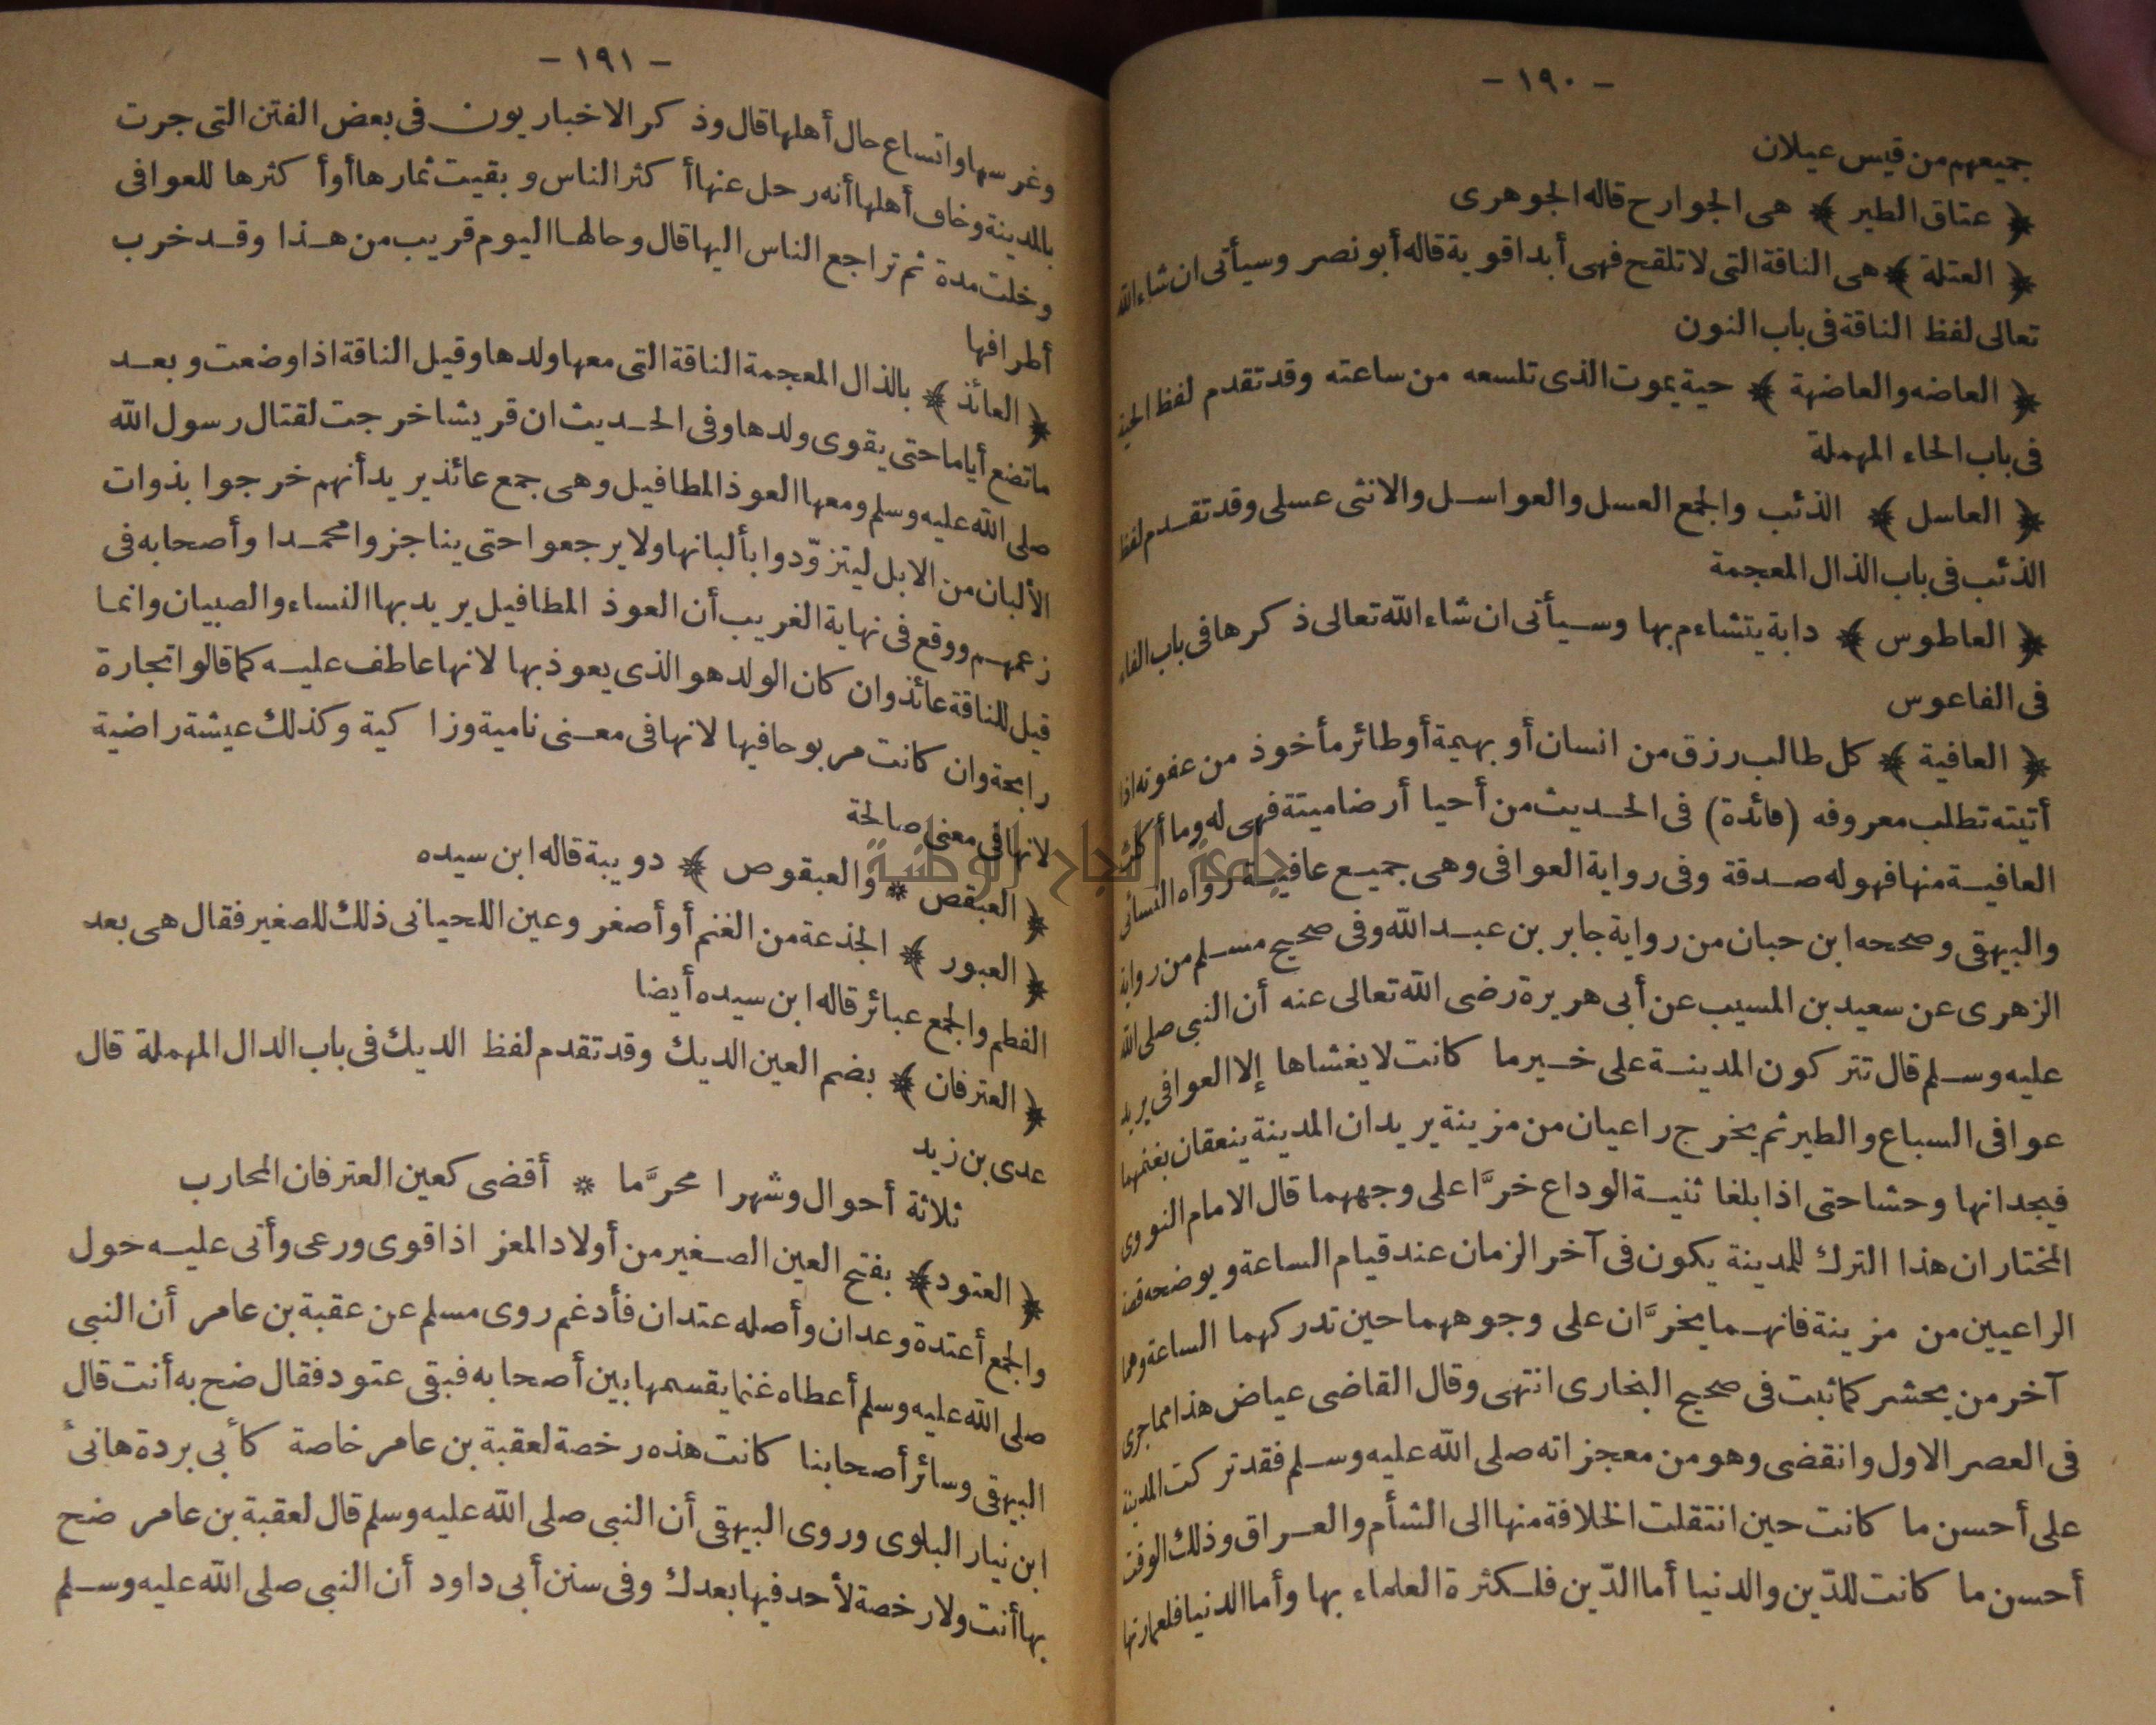 - ١٩٠ -
جميعهم من قيس عيلان
﴿ عتاق الطير ﴾ هى الجوارح قاله الجوهرى
﴿ العتلة ﴾ هى الناقة التى لا تلقح فهى أبدا قوية قاله أبو نصر وسيأتى ان شاء الله
تعالى لفظ الناقة فى باب النون
﴿ العاضه والعاضهة ﴾ حية يموت الذى تلسعه من ساعته وقد تقدم لفظ الحية
فى باب الحاء المهملة
﴿ العاسل ﴾ الذئب والجمع العسل والعواسل والانثى عسلى وقد تقدم لفظ
الذئب فى باب الذال المعجمة
﴿ العاطوس ﴾ دابة يتشاءم بها وسيأتى ان شاء الله تعالى ذكرها فى باب الفاء
فى الفاعوس
﴿ العافية ﴾ كل طالب رزق من انسان أو بهيمة أو طائر مأخوذ من عفوته اذا
أتيته تطلب معروفه (فائدة) فى الحديث من أحيا أرضا ميتة فهى له وما أكلت
العافية منها فهو له صدقة وفى رواية العوافى وهى جميع عافية رواه النسائى
والبيهقى وصححه ابن حبان من رواية جابر بن عبد الله وفى صحيح مسلم من رواية
الزهرى عن سعيد بن المسيب عن أبى هريرة رضى الله تعالى عنه أن النبى صلى الله
عليه وسلم قال تتركون المدينة على خير ما كانت لا يغشاها إلا العوافى يريد
عوافى السباع والطير ثم يخرج راعيان من مزينة يريدان المدينة ينعقان بغنمهما
فيجدانها وحشا حتى اذا بلغا ثنية الوداع خرَّا على وجههما قال الامام النووى
المختار ان هذا الترك للمدينة يكون فى آخر الزمان عند قيام الساعة ويوضحه قصة
الراعيين من مزينة فانهما يخرَّان على وجوههما حين تدركهما الساعة وهما
آخر من يحشر كما ثبت فى صحيح البخارى انتهى وقال القاضى عياض هذا مما جرى
فى العصر الاول وانقضى وهو من معجزاته صلى الله عليه وسلم فقد تركت المدينة
على أحسن ما كانت حين انتقلت الخلافة منها الى الشأم والعراق وذلك الوقت
أحسن ما كانت للدّين والدنيا أما الدّين فلكثرة العلماء بها وأما الدنيا فلعمارتها
- ١٩١ -
وغرسها واتساع حال أهلها قال وذكر الاخباريون فى بعض الفتن التى جرت
بالمدينة وخاف أهلها أنه رحل عنها أكثر الناس وبقيت ثمارها أو أكثرها للعوافى
وخلت مدة ثم تراجع الناس اليها قال وحالها اليوم قريب من هذا وقد خرب
أطرافها
﴿ العائذ ﴾ بالذال المعجمة الناقة التى معها ولدها وقيل الناقة اذا وضعت وبعد
ما تضع أياما حتى يقوى ولدها وفى الحديث ان قريشا خرجت لقتال رسول الله
صلى الله عليه وسلم ومعها العوذ المطافيل وهى جمع عائذ يريد أنهم خرجوا بذوات
الألبان من الابل ليتزوّدوا بألبانها ولا يرجعوا حتى يناجزوا محمدا وأصحابه فى
زعمهم ووقع فى نهاية الغريب أن العوذ المطافيل يريد بها النساء والصبيان وانما
قيل للناقة عائذ وان كان الولد هو الذى يعوذ بها لانها عاطف عليه كما قالوا تجارة
رابحة وان كانت مربوحا فيها لانها فى معنى نامية وزاكية وكذلك عيشة راضية
لانها فى معنى صالحة
﴿ العبقص * والعبقوص ﴾ دويبة قاله ابن سيده
﴿ العبور ﴾ الجذعة من الغنم أو أصغر وعين اللحيانى ذلك للصغير فقال هى بعد
الفطم والجمع عبائر قاله ابن سيده أيضا
﴿ العترفان ﴾ بضم العين الديك وقد تقدم لفظ الديك فى باب الدال المهملة قال
عدى بن زيد
ثلاثة أحوال وشهرا محرَّما * أقضى كعين العترفان المحارب
﴿ العتود ﴾ بفتح العين الصغير من أولاد المعز اذا قوى ورعى وأتى عليه حول
والجمع أعتدة وعدان وأصله عتدان فأدغم روى مسلم عن عقبة بن عامر أن النبى
صلى الله عليه وسلم أعطاه غنما يقسمها بين أصحابه فبقى عتود فقال ضح به أنت قال
البيهقى وسائر أصحابنا كانت هذه رخصة لعقبة بن عامر خاصة كأبى بردة هانئ
ابن نيار البلوى وروى البيهقى أن النبى صلى الله عليه وسلم قال لعقبة بن عامر ضح
بها أنت ولا رخصة لأحد فيها بعدك وفى سنن أبى داود أن النبى صلى الله عليه وسلم
جامعة النجاح الوطنية